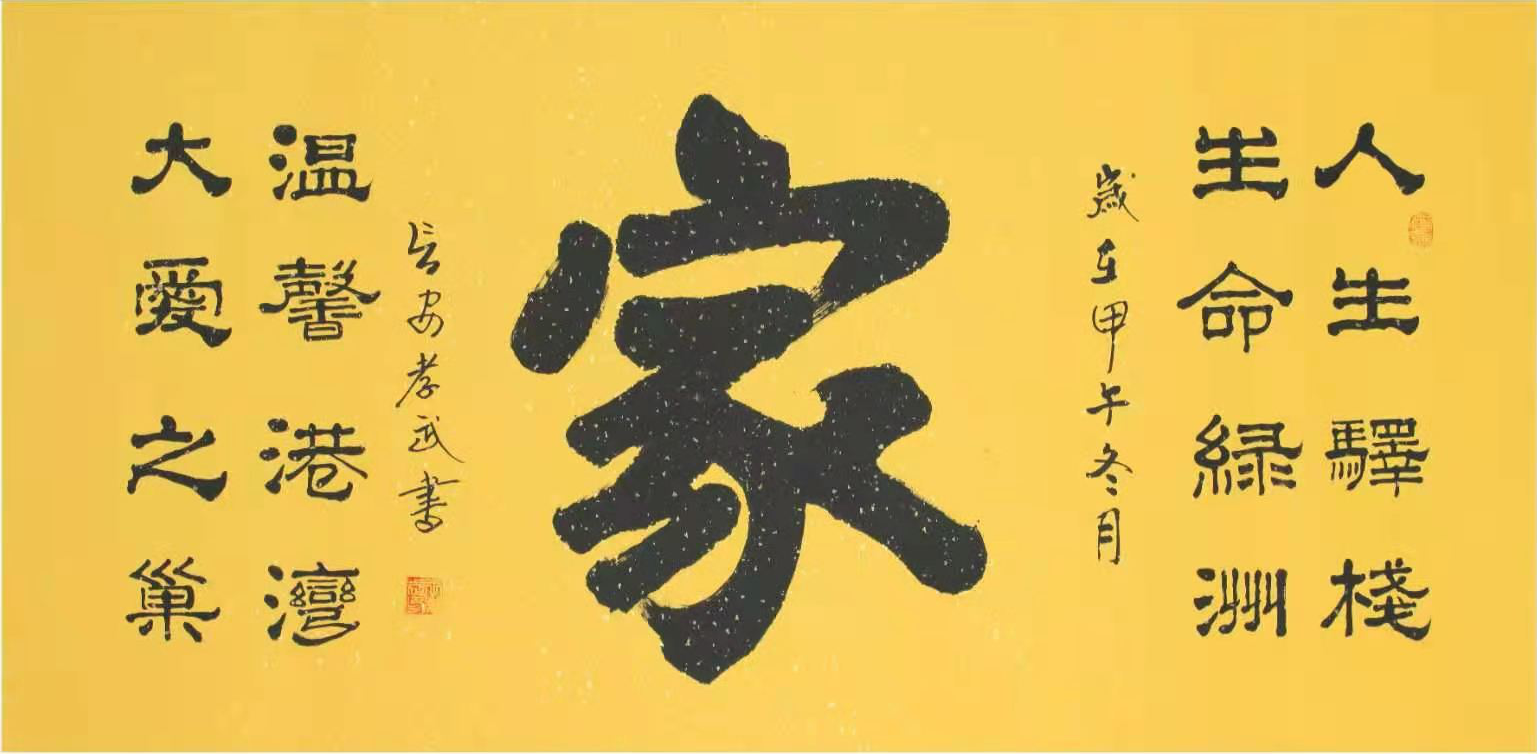 人生驛棧
生命緑洲
歲在甲午冬月
家
長安孝武書
温馨港灣
大愛之巢